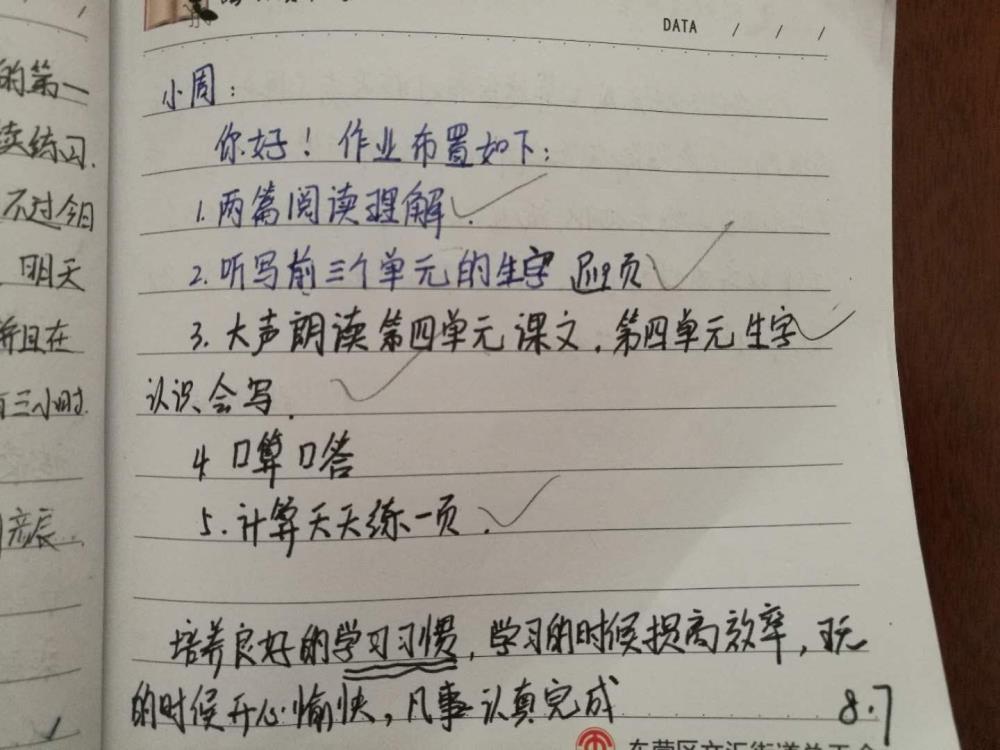 DATA / / /
的第一
读练习.
不过今日
明天
并且在
三小时.
小周：
你好！作业布置如下：
1.两篇阅读理解.
2.听写前三个单元的生字 页
3.大声朗读第四单元课文.第四单元生字
认识会写.
4 口算口答
5.计算天天练一页.
培养良好的学习习惯，学习的时候提高效率，玩
的时候开心愉快，凡事认真完成
8.7
东营区文汇街道总工会